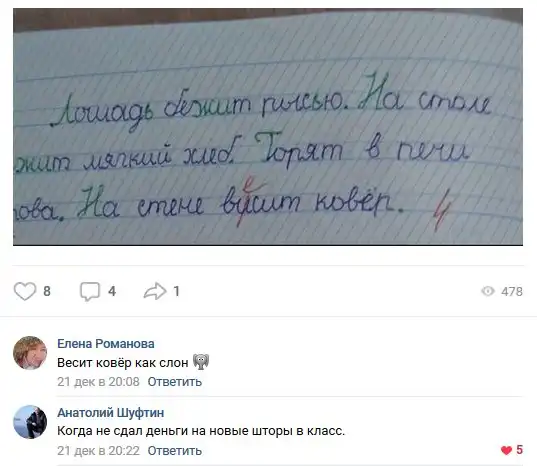 Лошадь бежит рысью. На столе
жит мягкий хлеб. Горят в печи
е
ова. На стене висит ковёр. 4
8 4 1 478
Елена Романова
Весит ковёр как слон 🐘
21 дек в 20:08 Ответить
Анатолий Шуфтин
Когда не сдал деньги на новые шторы в класс.
21 дек в 20:22 Ответить 5